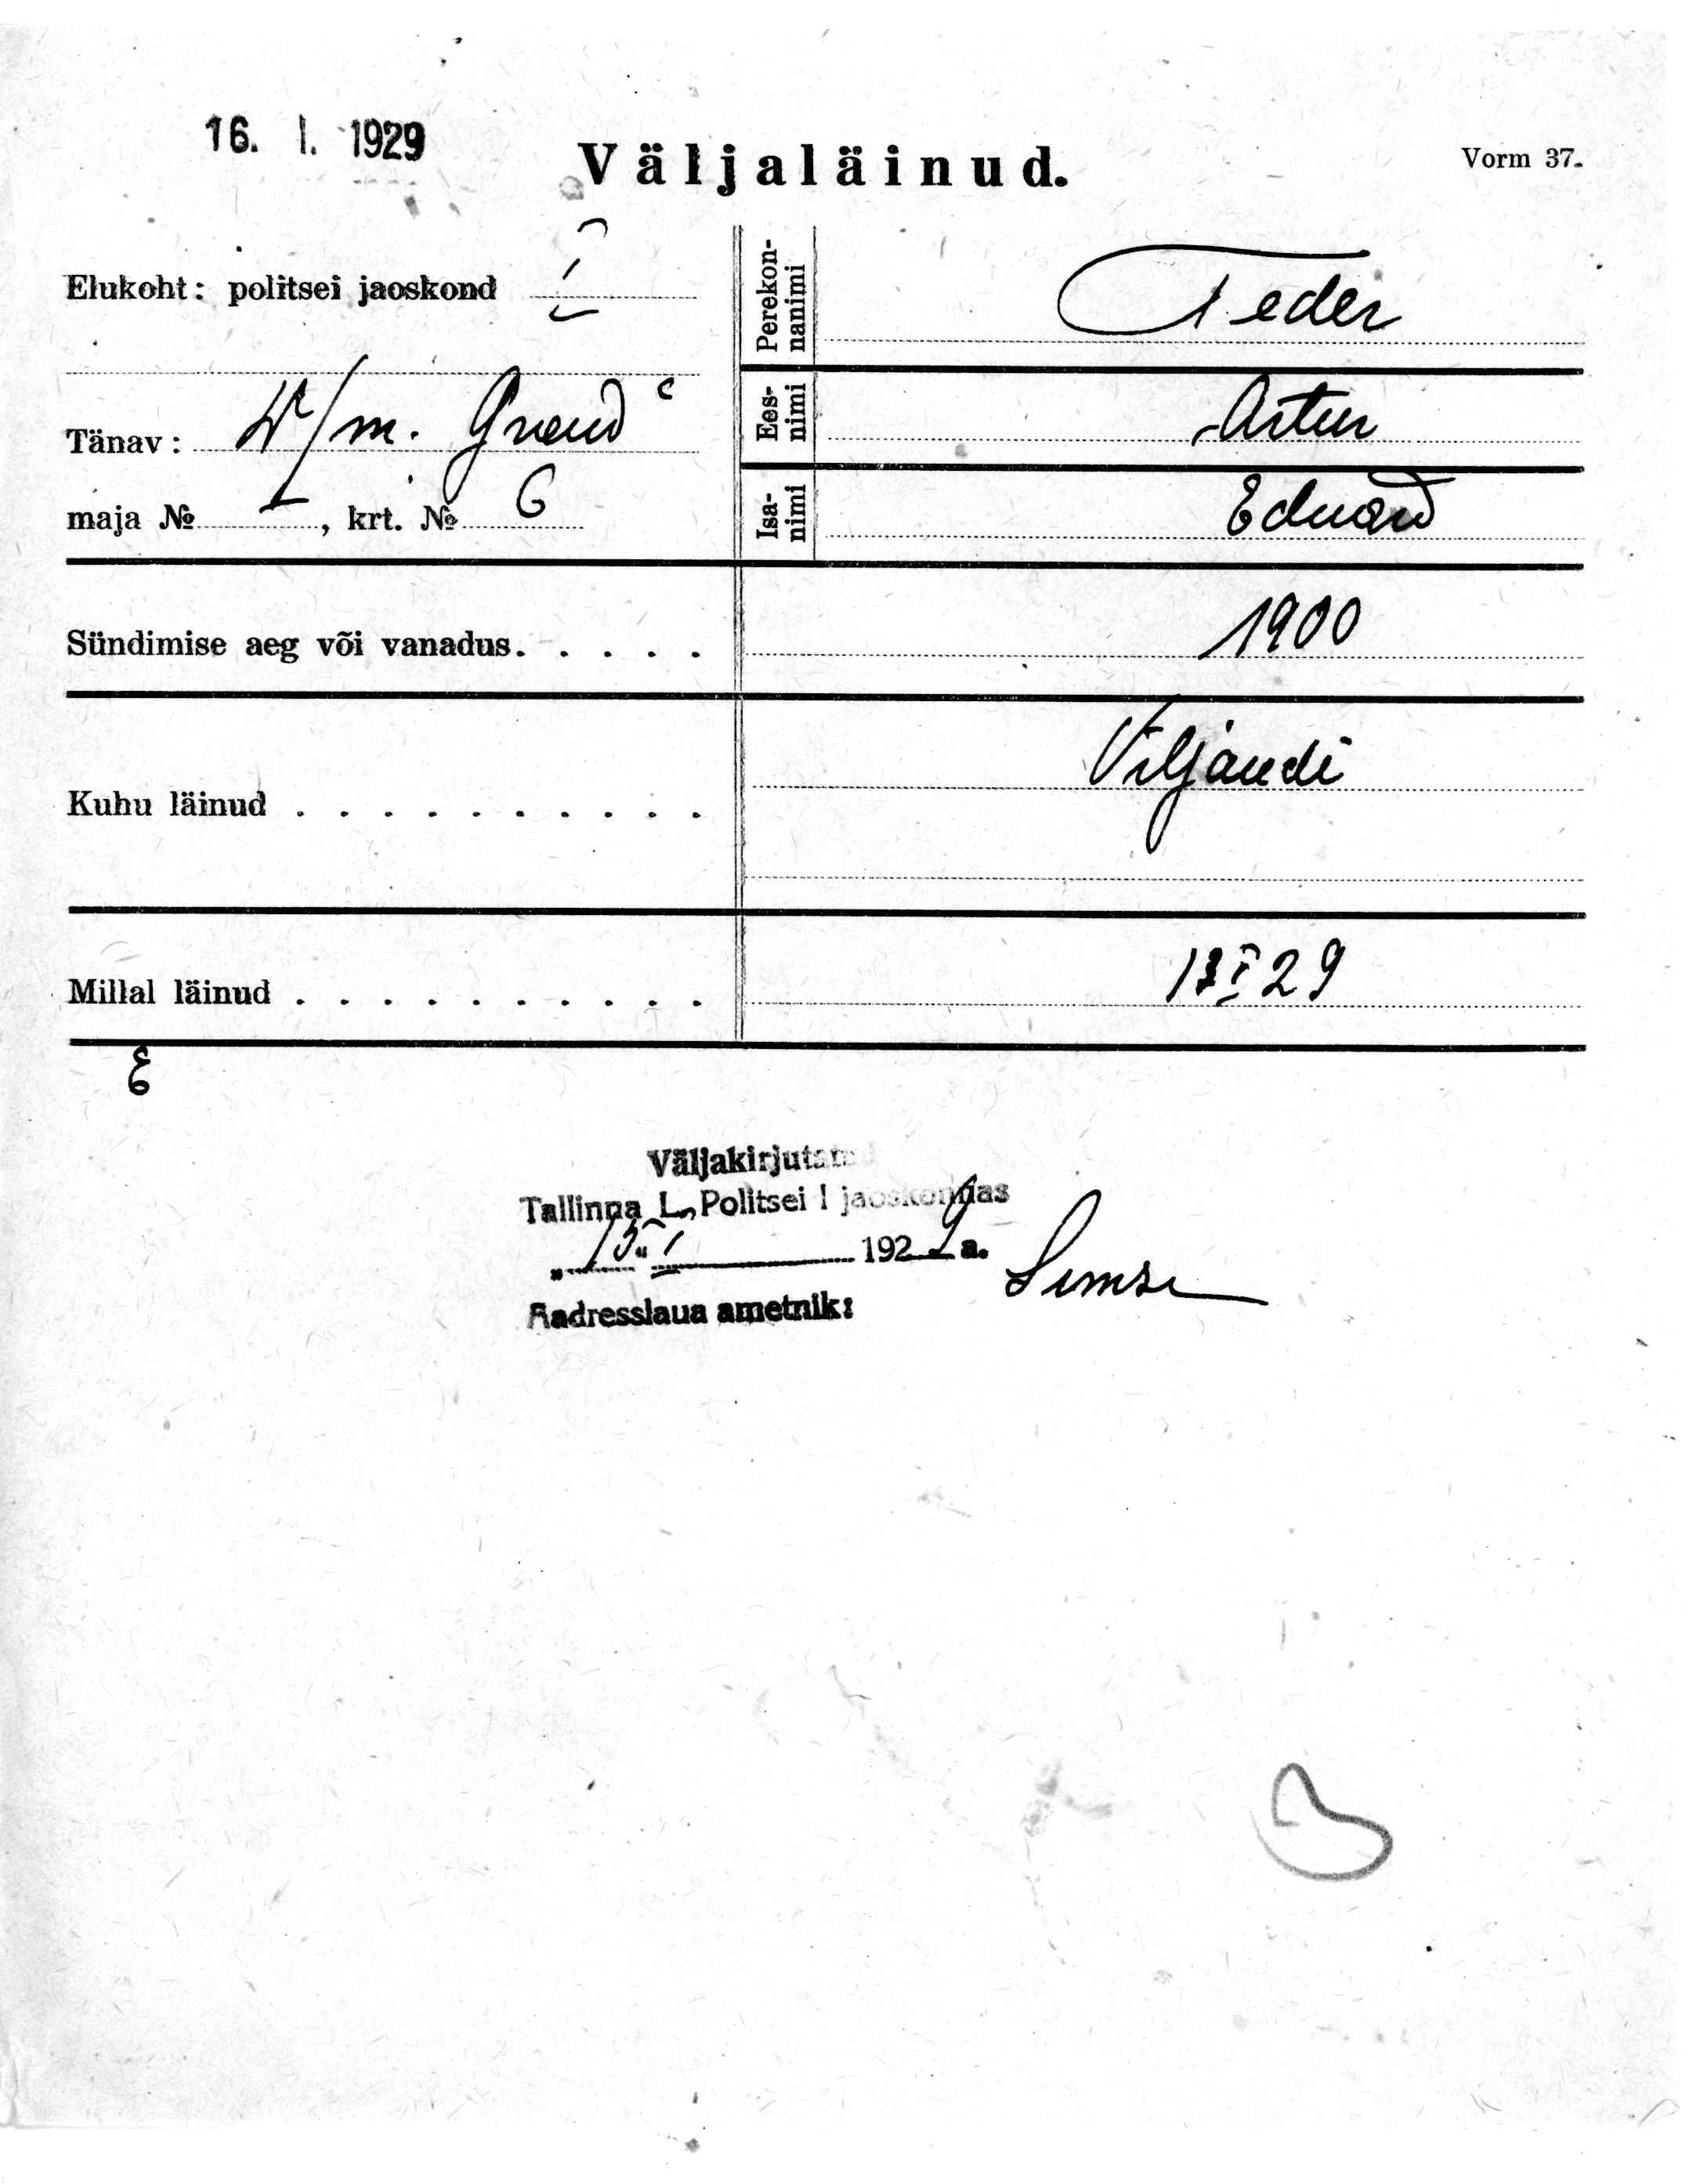 16. I. 1929
Väljaläinud.
Vorm 37.
Elukoht: politsei jaoskond I
Tänav: V/m. Grand
maja № , krt. № 6
Perekonnanimi Feder
Eesnimi Artur
Isanimi Eduard
Sündimise aeg või vanadus. . . . . 1900
Kuhu läinud . . . . . . . . . . Viljandi
Millal läinud . . . . . . . . . . 13 I 29
Väljakirjutatud
Tallinna L. Politsei I jaoskonnas
„15“ I 1929 a.
Aadresslaua ametnik: